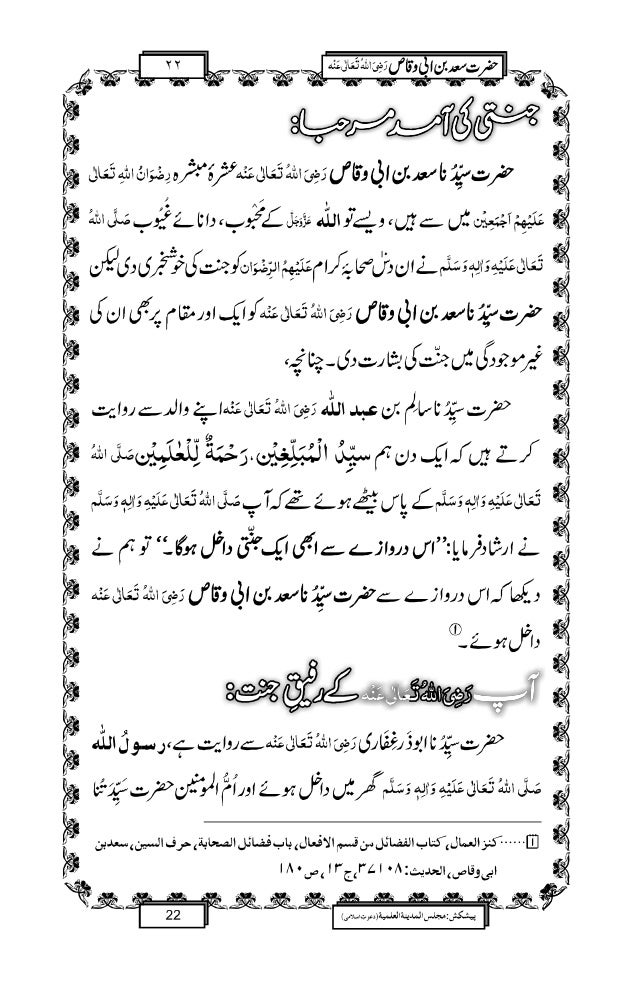 حضرت سعد بن ابی وقاص رَضِیَ اللہُ تَعَالٰی عَنْہ
۲۲
جنتی کی آمد مرحبا:
حضرت سیِّدُنا سعد بن ابی وقاص رَضِیَ اللہُ تَعَالٰی عَنْہ عشرۂ مبشرہ رِضْوَانُ اللہِ تَعَالٰی
عَلَیْہِمْ اَجْمَعِیْن میں سے ہیں، ویسے تو اللہ عَزَّوَجَلَّ کے محبوب، دانائے غیوب صَلَّی اللہُ
تَعَالٰی عَلَیْہِ وَاٰلِہٖ وَسَلَّم نے ان دس صحابۂ کرام عَلَیْہِمُ الرِّضْوَان کو جنت کی خوشخبری دی لیکن
حضرت سیِّدُنا سعد بن ابی وقاص رَضِیَ اللہُ تَعَالٰی عَنْہ کو ایک اور مقام پر بھی ان کی
غیر موجودگی میں جنّت کی بشارت دی۔ چنانچہ،
حضرت سیِّدُنا سالم بن عبد اللہ رَضِیَ اللہُ تَعَالٰی عَنْہ اپنے والد سے روایت
کرتے ہیں کہ ایک دن ہم سیِّدُ الْمُبَلِّغِیْن، رَحْمَۃٌ لِّلْعٰلَمِیْن صَلَّی اللہُ
تَعَالٰی عَلَیْہِ وَاٰلِہٖ وَسَلَّم کے پاس بیٹھے ہوئے تھے کہ آپ صَلَّی اللہُ تَعَالٰی عَلَیْہِ وَاٰلِہٖ وَسَلَّم
نے ارشاد فرمایا: ’’اس دروازے سے ابھی ایک جنّتی داخل ہوگا۔‘‘ تو ہم نے
دیکھا کہ اس دروازے سے حضرت سیِّدُنا سعد بن ابی وقاص رَضِیَ اللہُ تَعَالٰی عَنْہ
داخل ہوئے۔ ①
آپ رَضِیَ اللہُ تَعَالٰی عَنْہ کے رفیقِ جنت:
حضرت سیِّدُنا ابوذر غِفَاری رَضِیَ اللہُ تَعَالٰی عَنْہ سے روایت ہے، رسولُ اللہ
صَلَّی اللہُ تَعَالٰی عَلَیْہِ وَاٰلِہٖ وَسَلَّم گھر میں داخل ہوئے اور اُمُّ المومنین حضرت سَیِّدَتُنا
[۱]……کنز العمال، کتاب الفضائل من قسم الافعال، باب فضائل الصحابۃ، حرف السین، سعد بن
ابی وقاص، الحدیث: ۳۷۱۰۸، ج۱۳، ص۱۸۰
پیشکش: مجلس المدینۃ العلمیۃ (دعوت اسلامی)
22